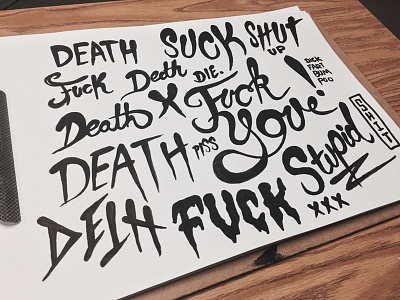 DEATH SUCK SHUT
UP
Fuck Death DIE. !
DICK
FART
BUM
POO
Death X Fuck
You
DEATH PISS
SHIT
Stupid
DETH FUCK
XXX